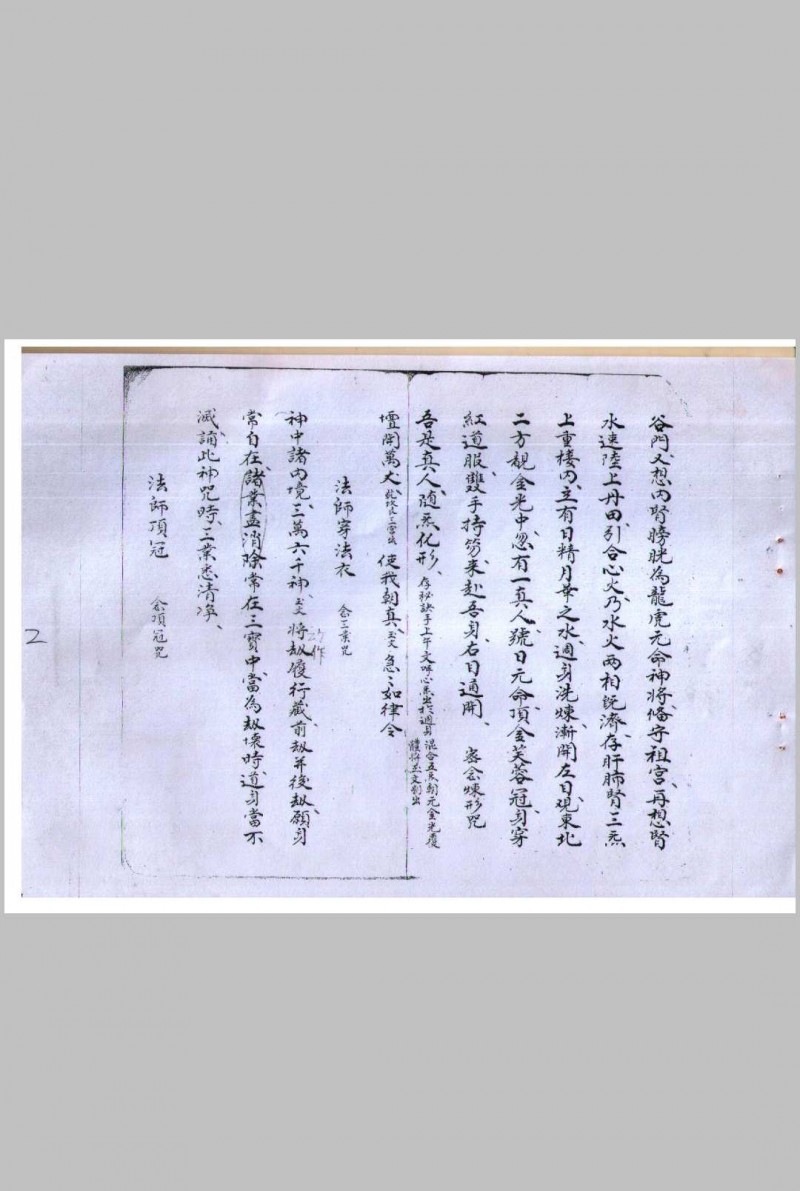 谷門又想內腎膀胱為龍虎元命神將俻守祖宮、再想腎
水速陸上丹田引合心火乃水火两相既濟存肝肺腎三炁
上重樓內立有日精月華之水週身洗煉漸開左目觀東北
二方靚金光中忽有一真人號曰元命頂金芙蓉冠身穿
紅道服雙手持笏来赴吾身右目通開、 密念煉形咒
吾是真人隨炁化形、
混合五炁朝元金光覆
壇開萬丈 使我朝真 急〻如律令
法師穿法衣 念三業咒
神中諸內境三萬六千神 將劫履行藏前劫并後劫願身
动作
常自在諸業盡消除常在三寶中當為劫壞時道身當不
滅誦此神咒時三業悉清净、
法師頂冠 念頂冠咒
2